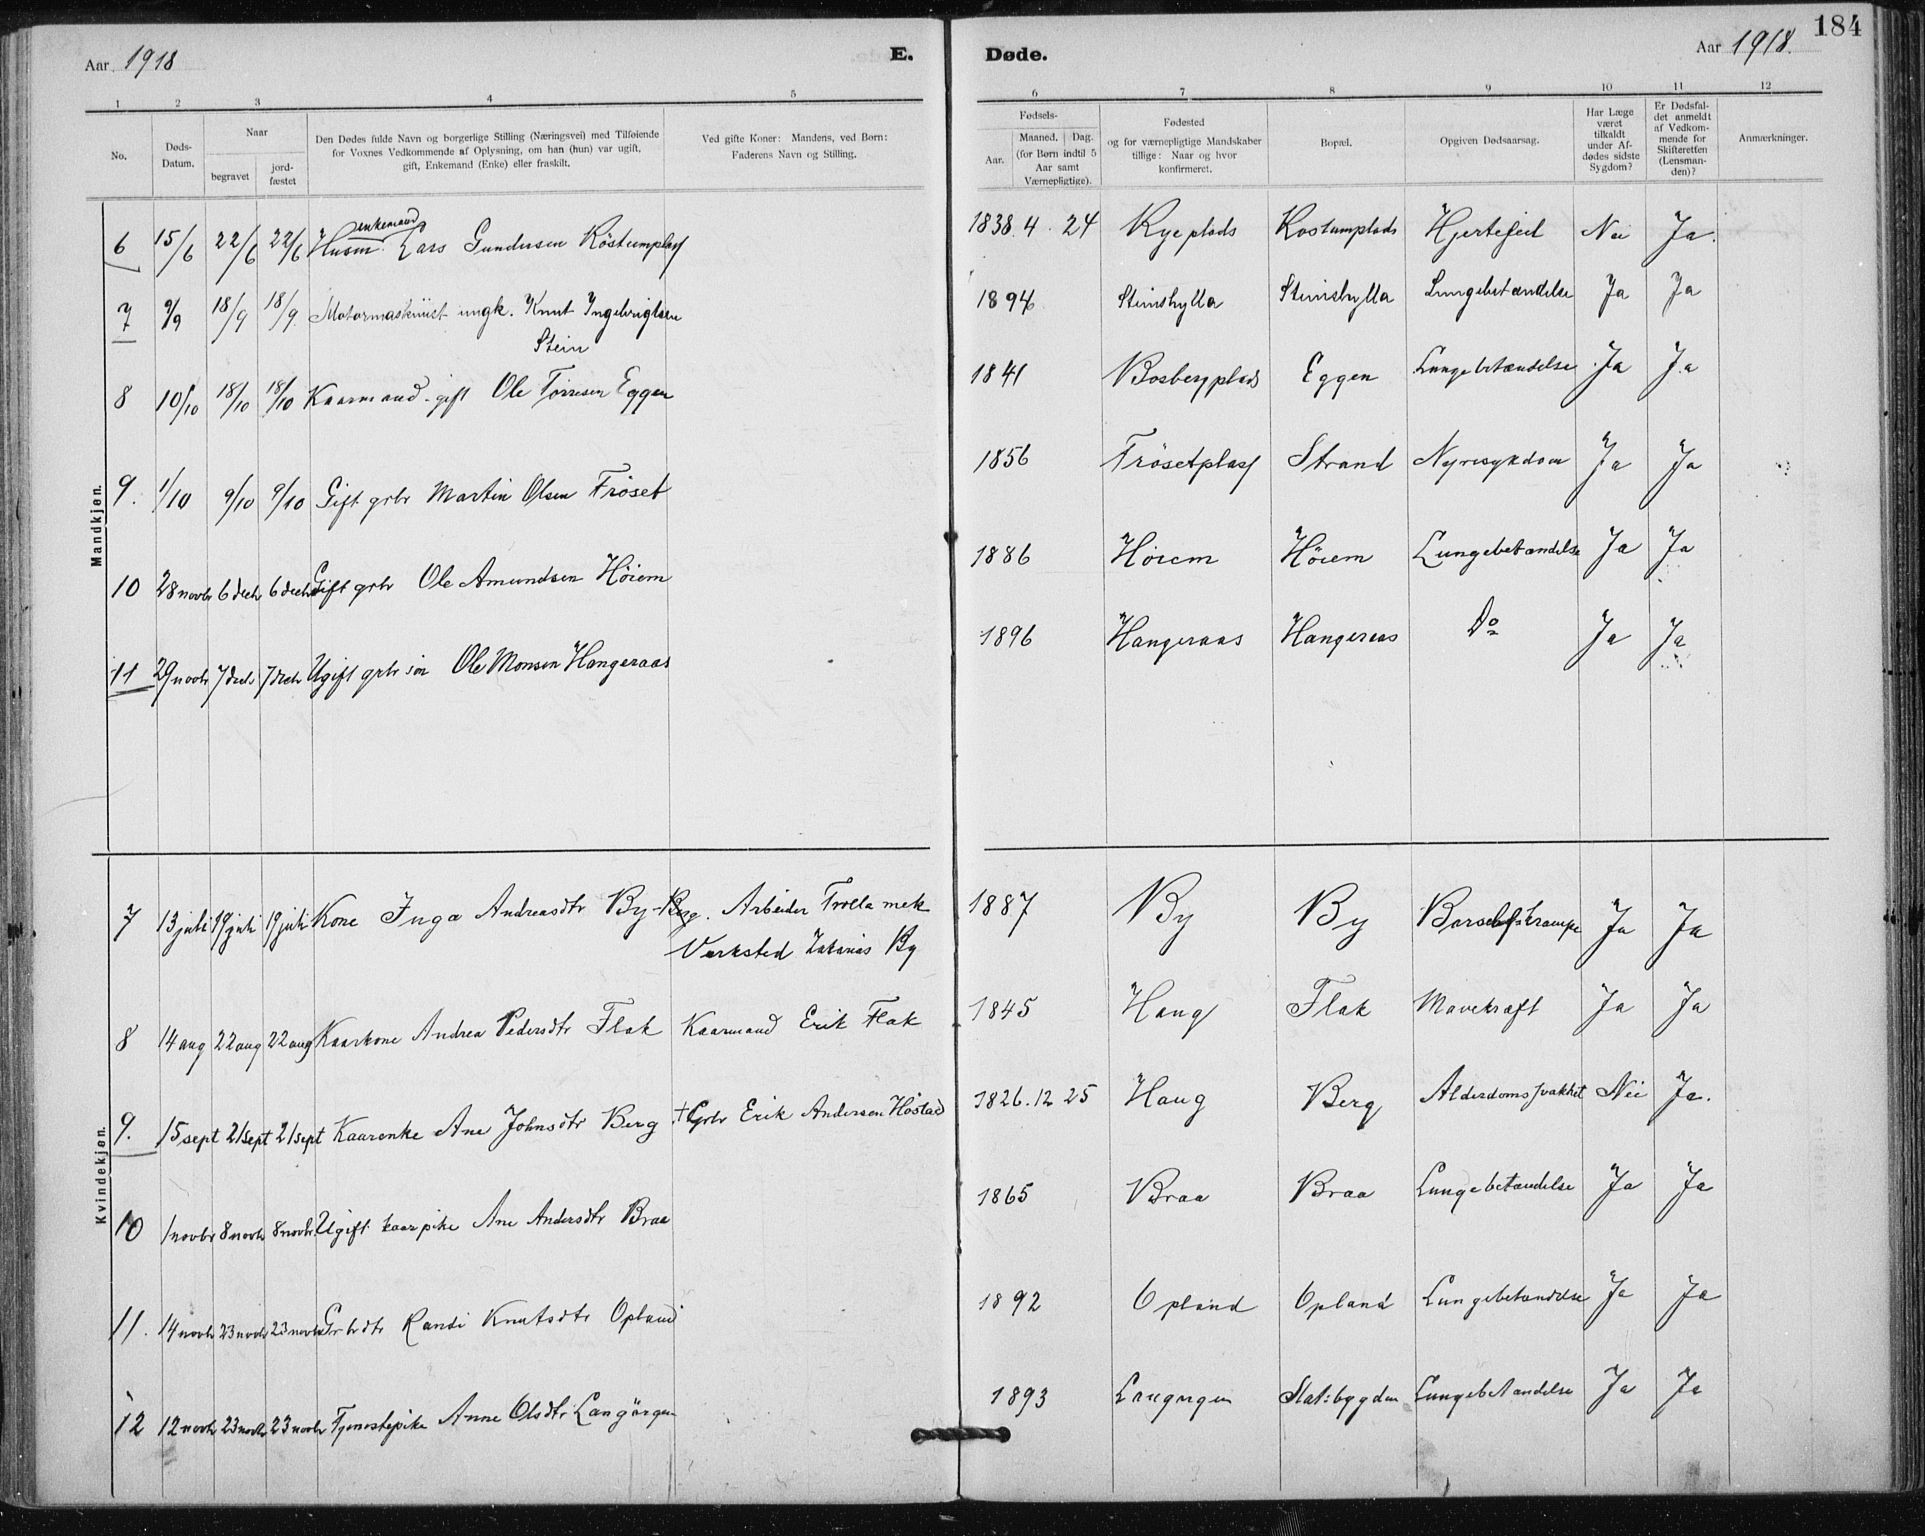 Aar 1918
E.
Døde.
Aar 1918.
184
1 2 3 4 5 6 7 8 9 10 11 12
No.
Døds-
Datum.
Naar
begravet
jord-
fæstet
Den Dødes fulde Navn og borgerlige Stilling (Næringsvei) med Tilføiende
for Voxnes Vedkommende af Oplysning, om han (hun) var ugift,
gift, Enkemand (Enke) eller fraskilt.
Ved gifte Koner: Mandens, ved Børn:
Faderens Navn og Stilling.
Fødsels-
Aar.
Maaned. Dag.
(for Børn indtil 5
Aar samt
Værnepligtige).
Fødested
og for værnepligtige Mandskaber
tillige: Naar og hvor
konfirmeret.
Bopæl.
Opgiven Dødsaarsag.
Har Læge
været
tilkaldt
under Af-
dødes sidste
Sygdom?
Er Dødsfal-
det anmeldt
af Vedkom-
mende for
Skifteretten
(Lensman-
den)?
Anmærkninger.
Mandkjøn.
enkemand
6 15/6 22/6 22/6 Husm. Lars Gundersen Röstumplass 1838.4.24 Ryeplads Rostumplads Hjertefeil Nei Ja.
7 9/9 18/9 18/9 Motormaskinist ungk. Knut Ingebrigtsen 1894 Steinshylla Steinshylla Lungebetændelse Ja Ja
Stein
8 10/10 18/10 18/10 Kaarmand. gift Ole Torresen Eggen 1841 Bosbergplads Eggen Lungebetændelse Ja Ja
9. 1/10 9/10 9/10 Gift grbr Martin Olsen Fröset 1856 Frösetplass Strand Nyresykdom Ja Ja
10 28 novbr 6 decbr 6 decbr Gift grbr Ole Amundsen Höiem 1886 Höiem Höiem Lungebetændelse Ja Ja
11 29 novbr 7 decbr 7 decbr Ugift grbr sön Ole Monsen Hangeraas 1896 Hangeraas Hangeraas Do Ja Ja
Kvindekjøn.
7 13 juli 19 juli 19 juli Kone Inga Andreasdtr By-Berg. Arbeider Trolla mek 1887 By By Barselskrampe Ja Ja
Verksted Zakarias By
8 14 aug 22 aug 22 aug Kaarkone Andrea Pedersdtr Flak Kaarmand Erik Flak 1845 Haug Flak Mavekræft Ja Ja
9. 15 sept 21 sept 21 sept Kaarenke Ane Johnsdtr Berg † Grbr Erik Andersen Höstad 1826.12 25 Haug Berg Alderdomssvakhet Nei Ja.
10 1 novbr 8 novbr 8 novbr. Ugift kaarpike Ane Andersdtr Braa 1865 Braa Braa Lungebetændelse Ja Ja
11. 14 novbr 23 novbr 23 novbr Grbrdtr Randi Knutsdtr Opland 1892 Opland Opland Lungebetændelse Ja Ja
12 12 novbr 23 novbr 23 novbr Tjenestepike Anne Olsdtr Langörgen 1893 Langorgen Statsbygden Lungebetændelse Ja Ja